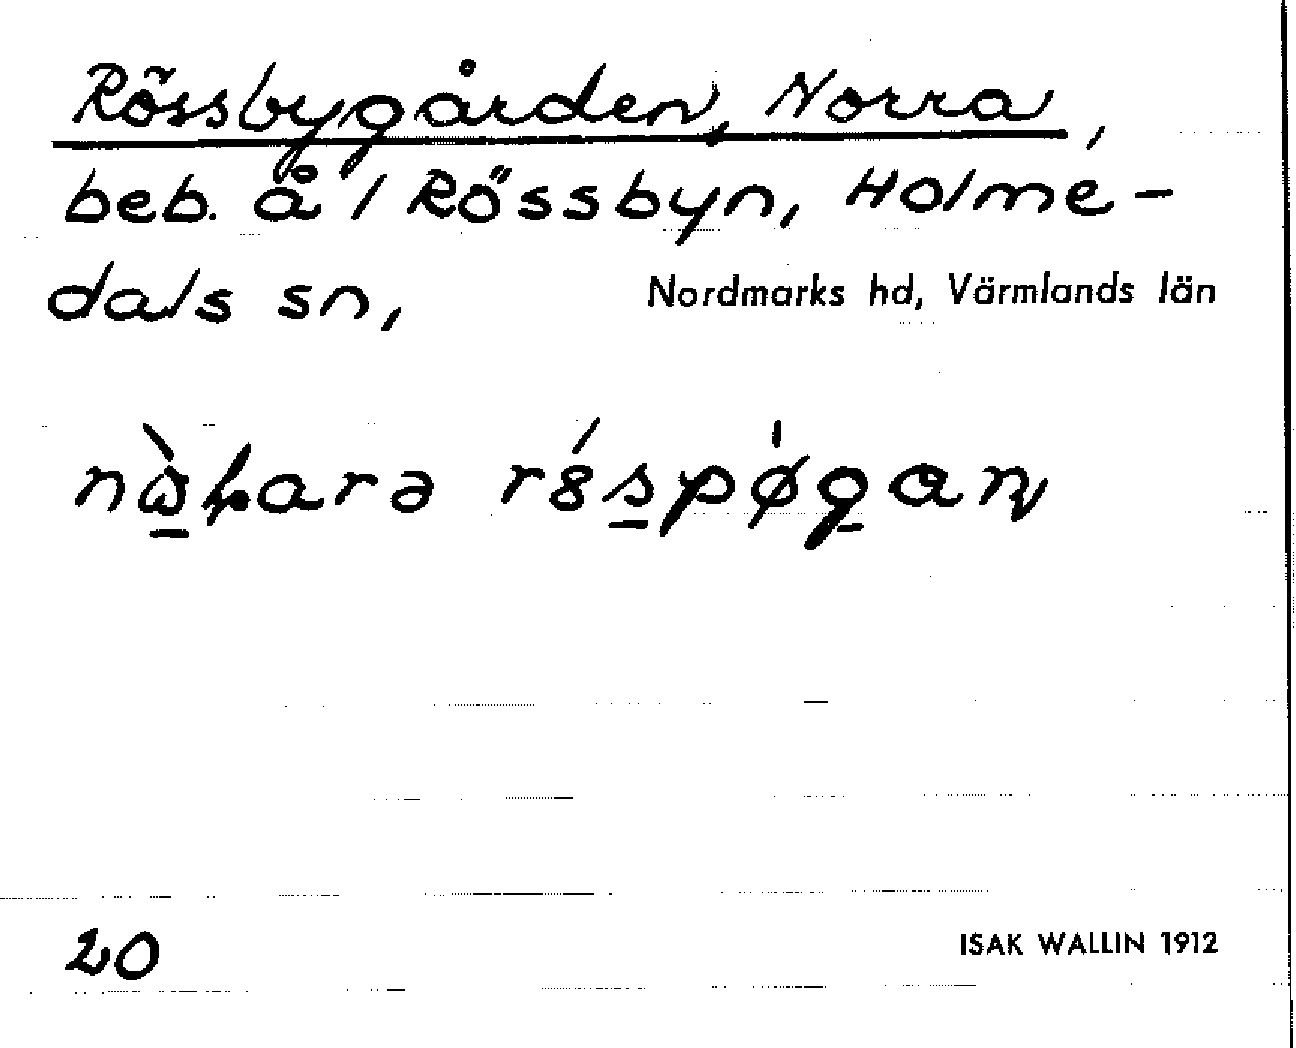 Rössbygården, Norra,
beb. å 1 Rössbyn, Holme-
dals sn, Nordmarks hd, Värmlands län
20
ISAK WALLIN 1912